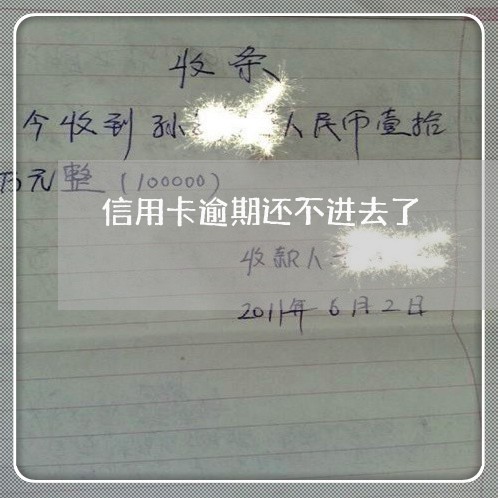 收条
今收到孙 人民币壹拾
万元整(100000)
信用卡逾期还不进去了
收款人
2011年6月2日